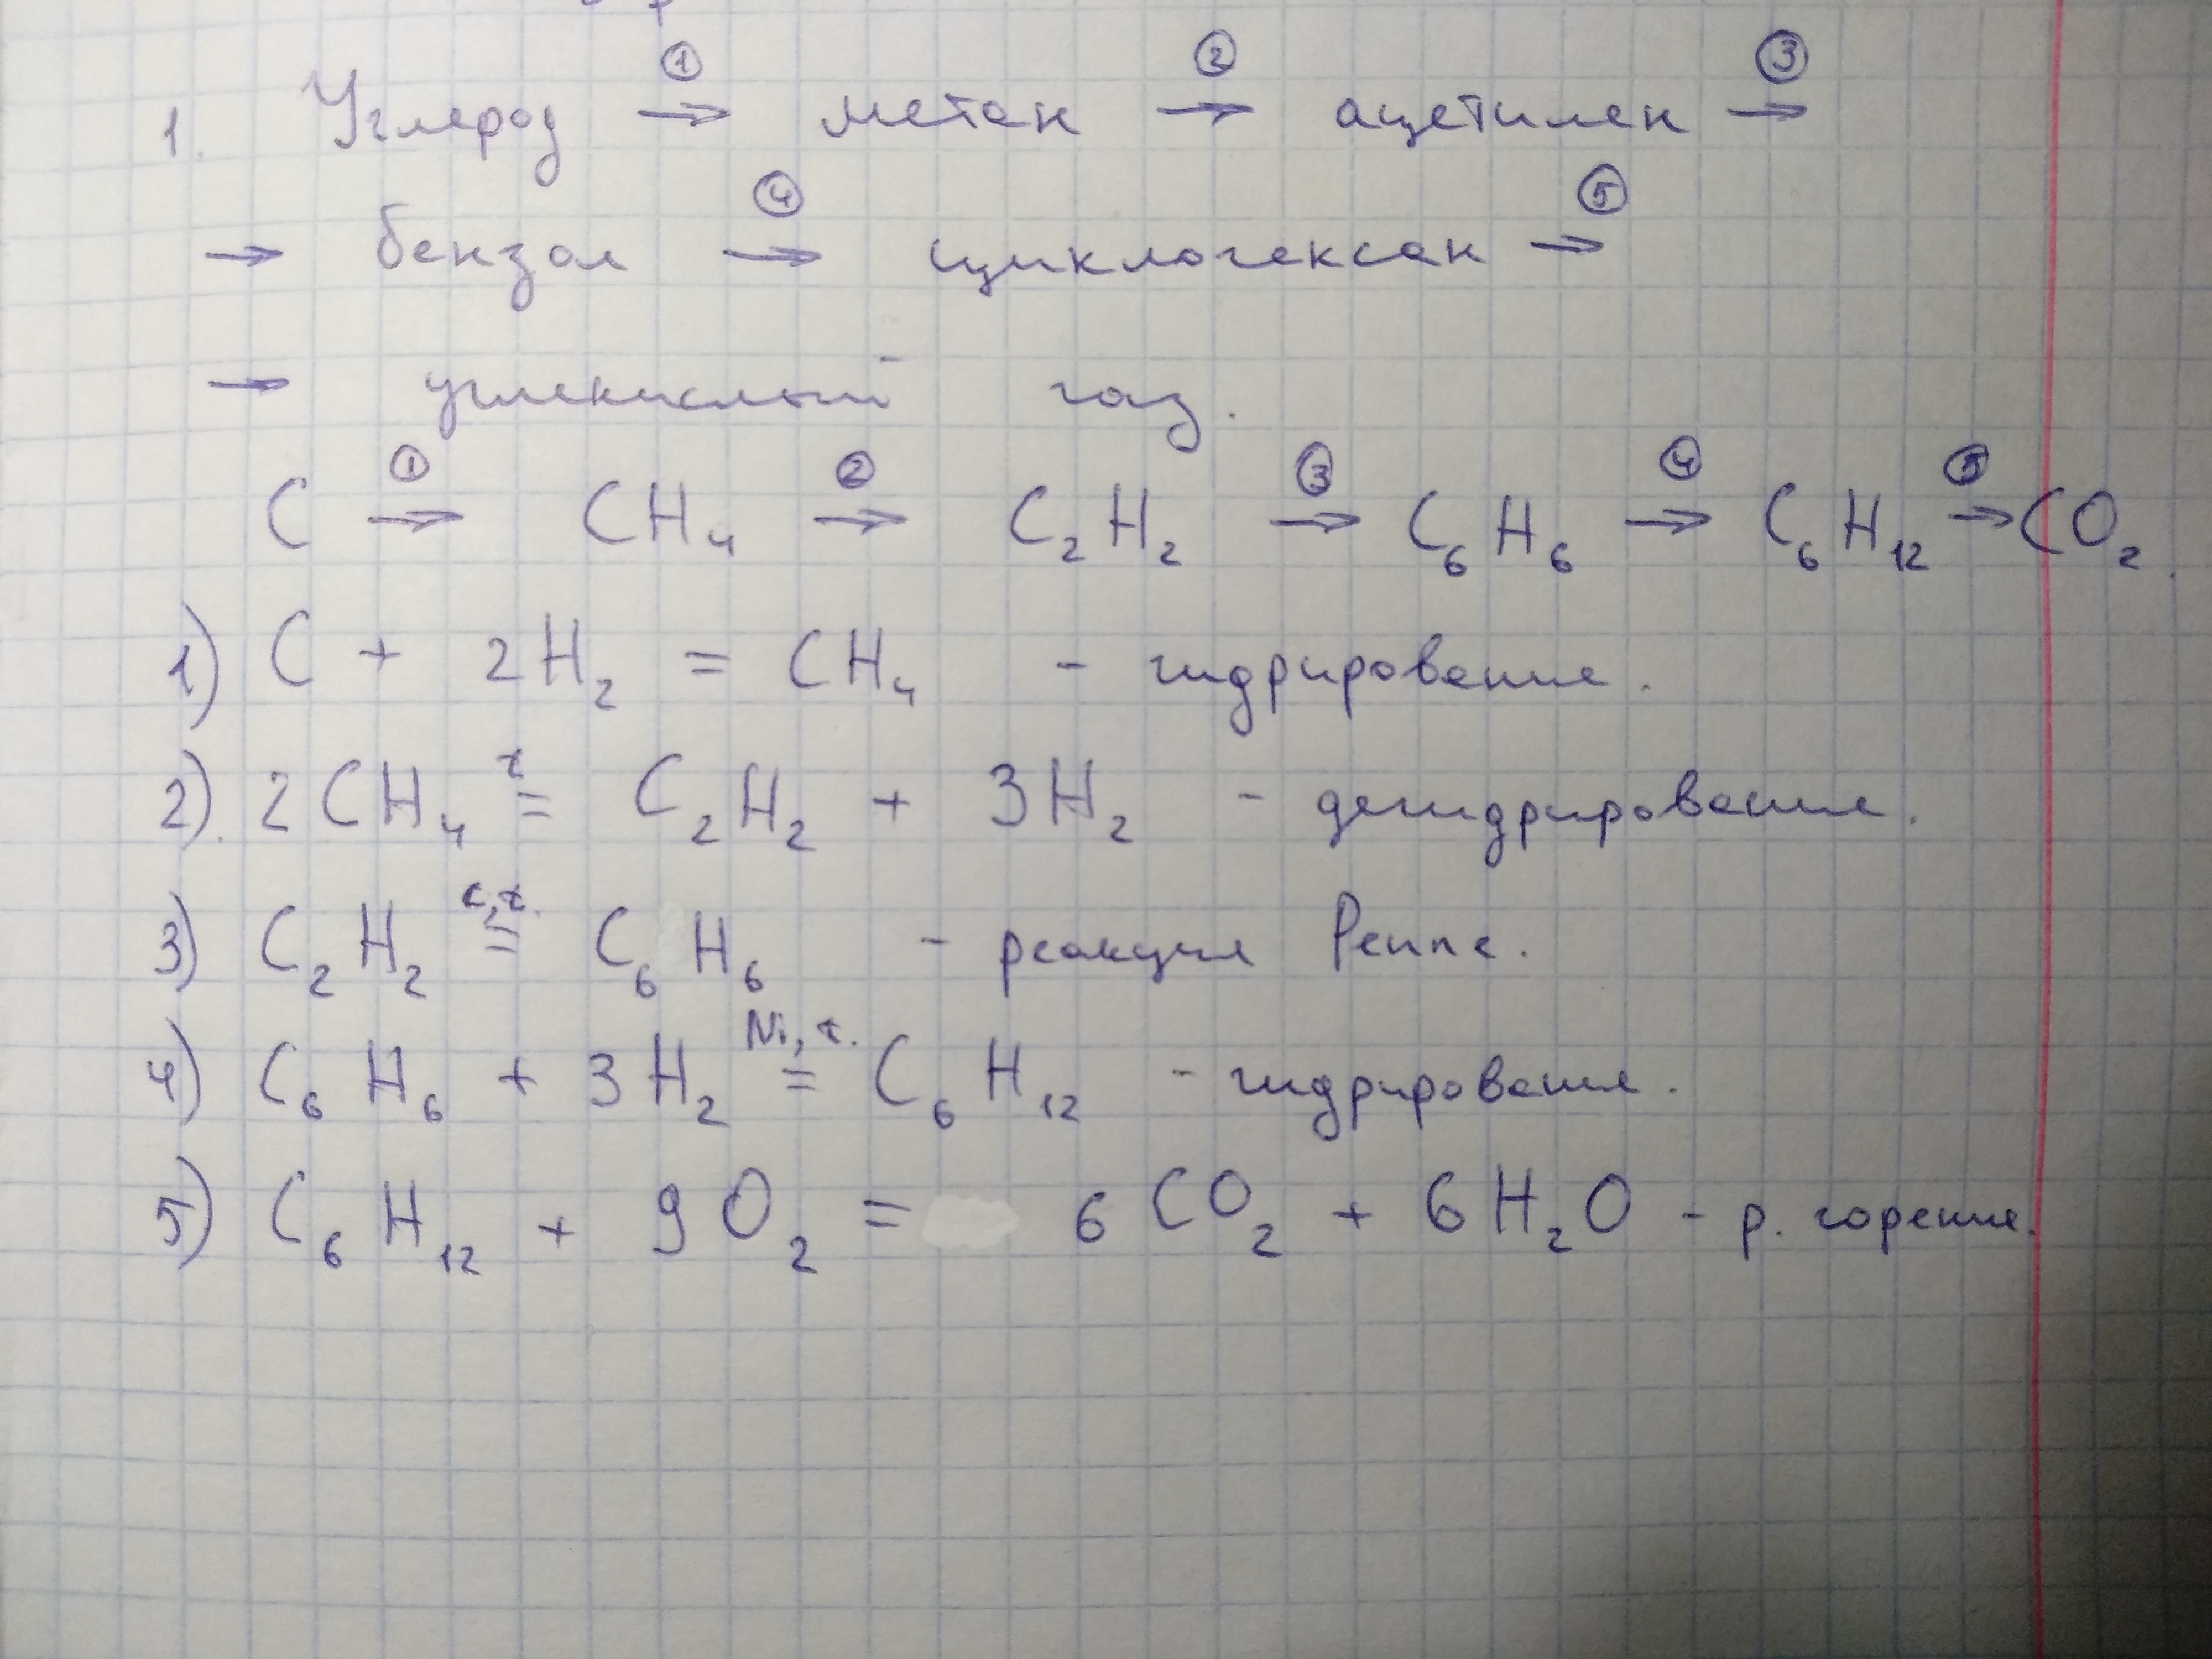 1. Углерод ① → метан ② → ацетилен ③ →
→ бензол ④ → циклогексан ⑤ →
→ углекислый газ.
C ① → CH₄ ② → C₂H₂ ③ → C₆H₆ ④ → C₆H₁₂ ⑤ → CO₂.
1) C + 2H₂ = CH₄ - гидрирование.
2). 2CH₄ t = C₂H₂ + 3H₂ - дегидрирование.
3) C₂H₂ c, t. = C₆H₆ - реакция Реппе.
4) C₆H₆ + 3H₂ Ni, t. = C₆H₁₂ - гидрирование.
5) C₆H₁₂ + 9O₂ = 6CO₂ + 6H₂O - р. горение.